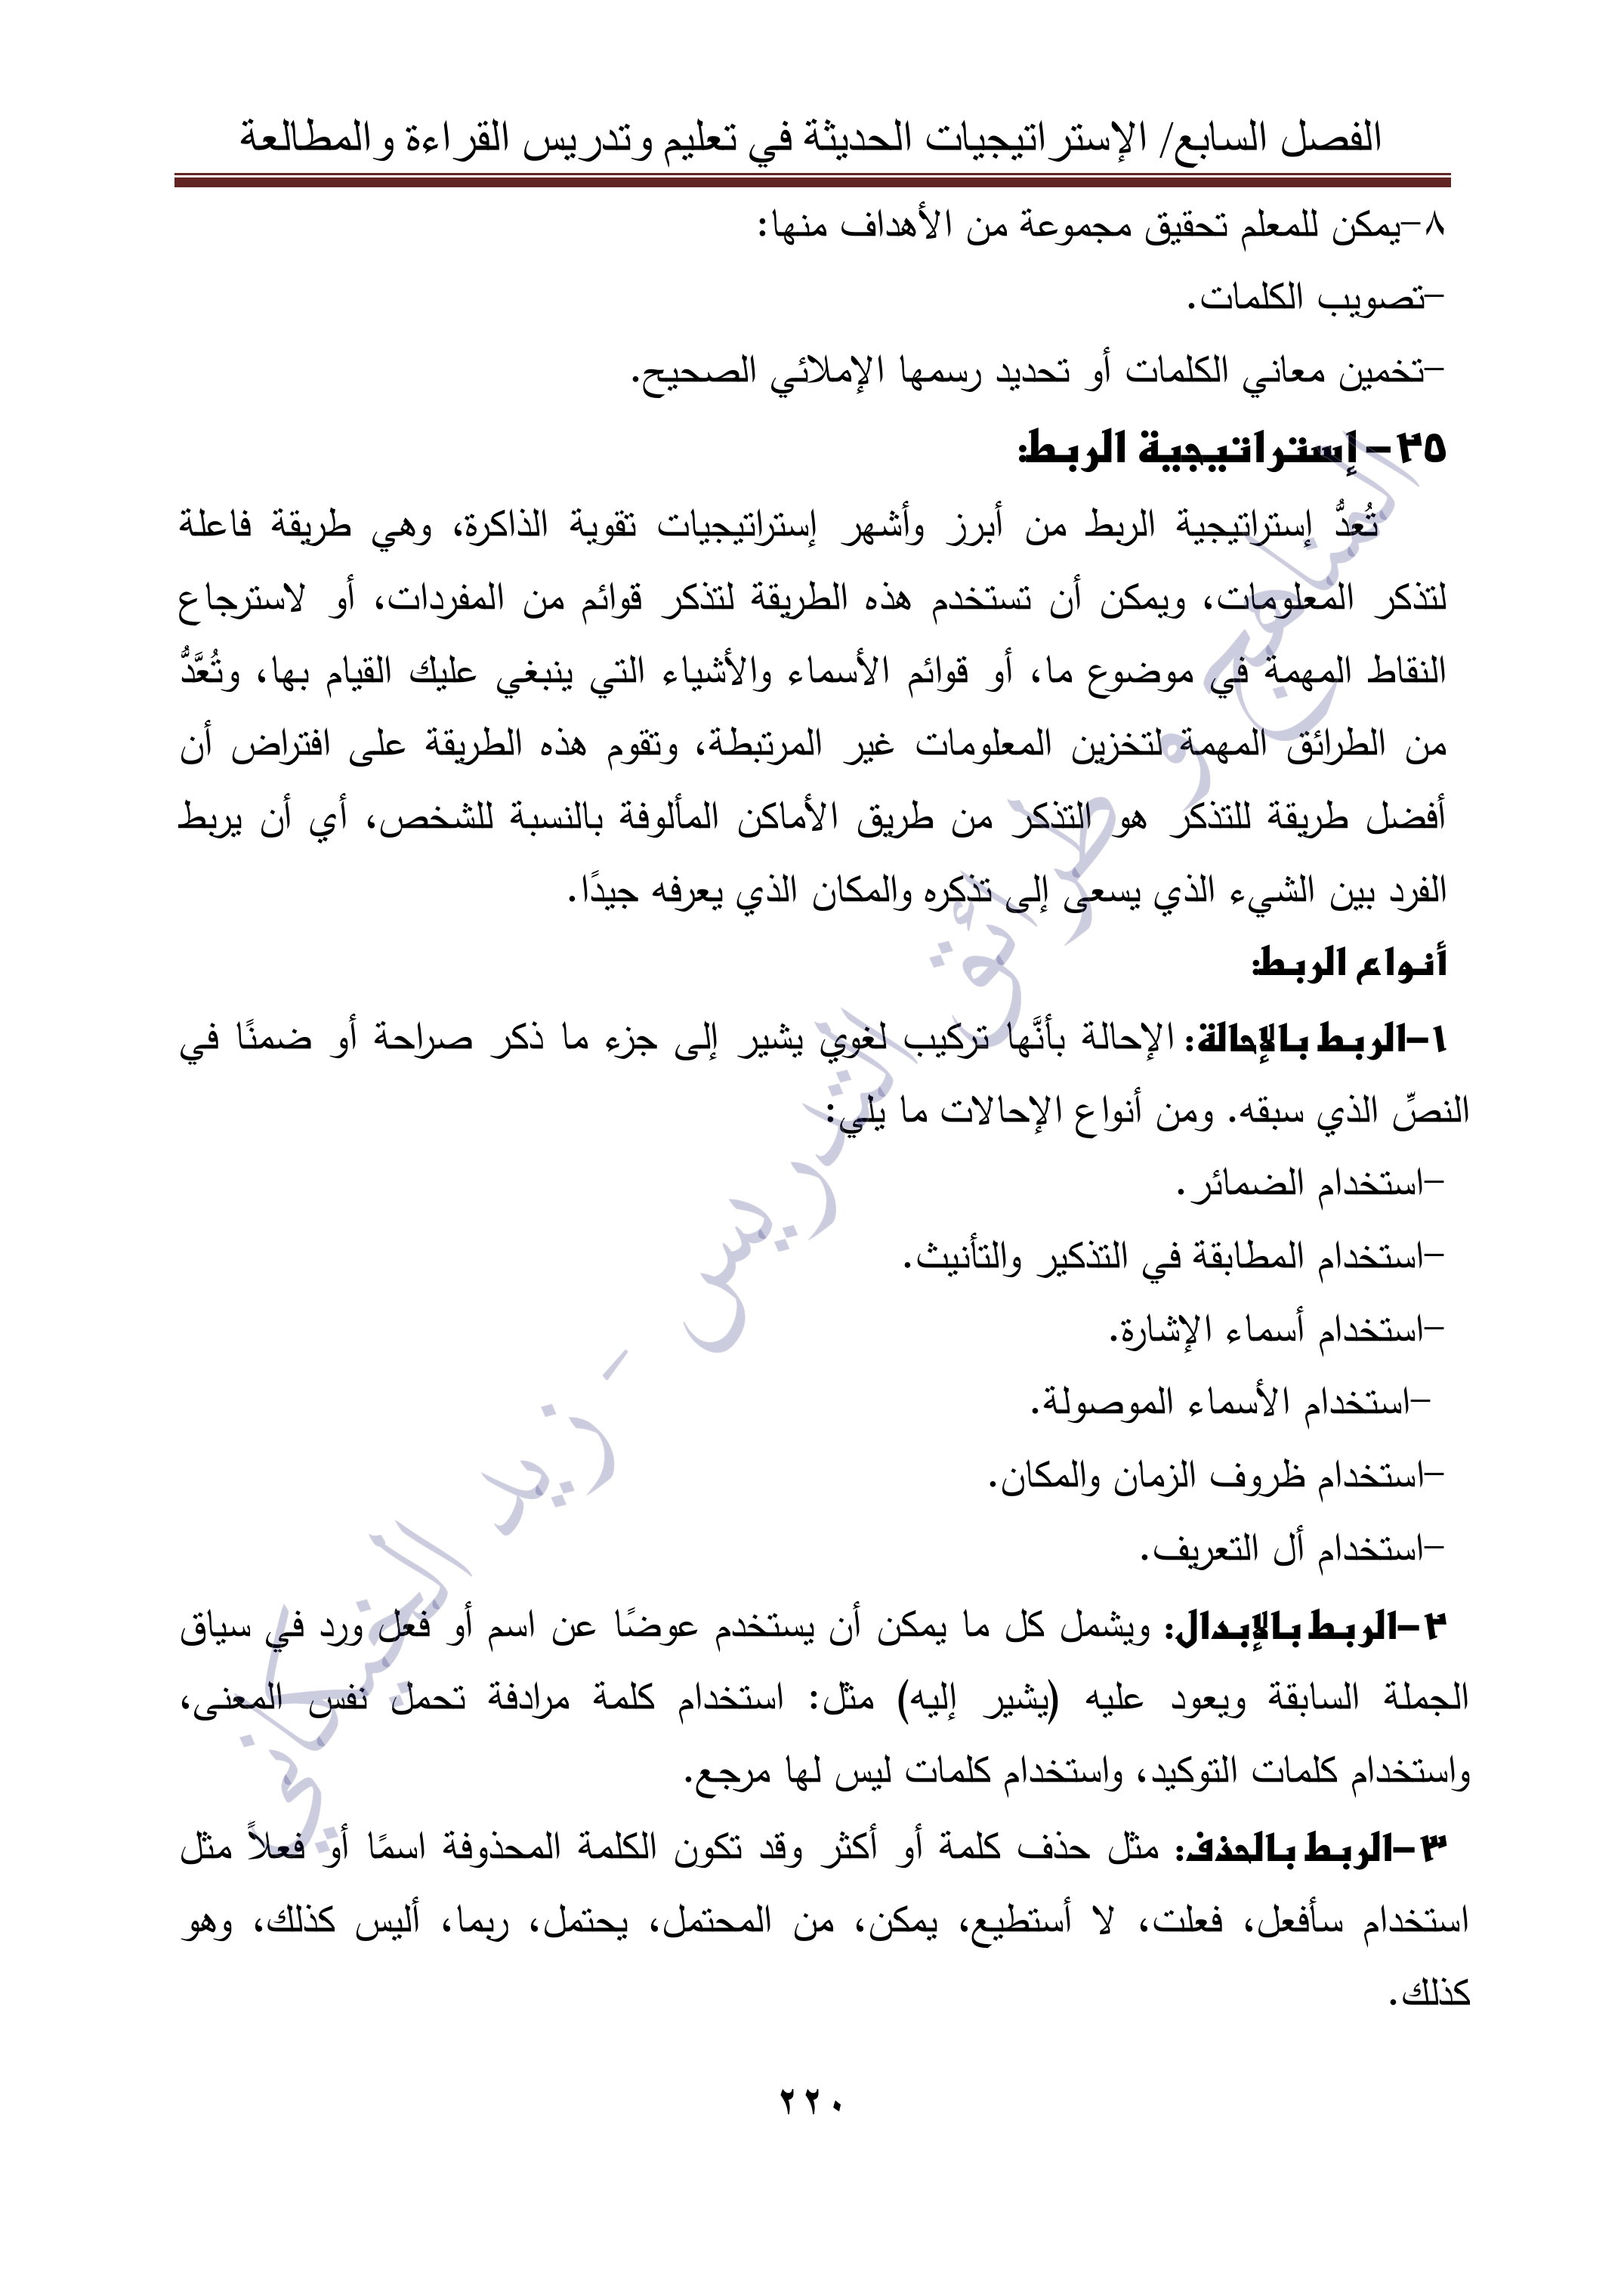 الفصل السابع/ الإستراتيجيات الحديثة في تعليم وتدريس القراءة والمطالعة
٨-يمكن للمعلم تحقيق مجموعة من الأهداف منها:
-تصويب الكلمات.
-تخمين معاني الكلمات أو تحديد رسمها الإملائي الصحيح.
٢٥- إستراتيجية الربط:
تُعدُّ إستراتيجية الربط من أبرز وأشهر إستراتيجيات تقوية الذاكرة، وهي طريقة فاعلة
لتذكر المعلومات، ويمكن أن تستخدم هذه الطريقة لتذكر قوائم من المفردات، أو لاسترجاع
النقاط المهمة في موضوع ما، أو قوائم الأسماء والأشياء التي ينبغي عليك القيام بها، وتُعَّدُّ
من الطرائق المهمة لتخزين المعلومات غير المرتبطة، وتقوم هذه الطريقة على افتراض أن
أفضل طريقة للتذكر هو التذكر من طريق الأماكن المألوفة بالنسبة للشخص، أي أن يربط
الفرد بين الشيء الذي يسعى إلى تذكره والمكان الذي يعرفه جيدًا.
أنواع الربط:
١-الربط بالإحالة: الإحالة بأنَّها تركيب لغوي يشير إلى جزء ما ذكر صراحة أو ضمنًا في
النصِّ الذي سبقه. ومن أنواع الإحالات ما يلي:
-استخدام الضمائر.
-استخدام المطابقة في التذكير والتأنيث.
-استخدام أسماء الإشارة.
-استخدام الأسماء الموصولة.
-استخدام ظروف الزمان والمكان.
-استخدام أل التعريف.
٢-الربط بالإبدال: ويشمل كل ما يمكن أن يستخدم عوضًا عن اسم أو فعل ورد في سياق
الجملة السابقة ويعود عليه (يشير إليه) مثل: استخدام كلمة مرادفة تحمل نفس المعنى،
واستخدام كلمات التوكيد، واستخدام كلمات ليس لها مرجع.
٣-الربط بالحذف: مثل حذف كلمة أو أكثر وقد تكون الكلمة المحذوفة اسمًا أو فعلاً مثل
استخدام سأفعل، فعلت، لا أستطيع، يمكن، من المحتمل، يحتمل، ربما، أليس كذلك، وهو
كذلك.
٢٢٠
المناهج و طرائق التدريس - زيد الخيكاني